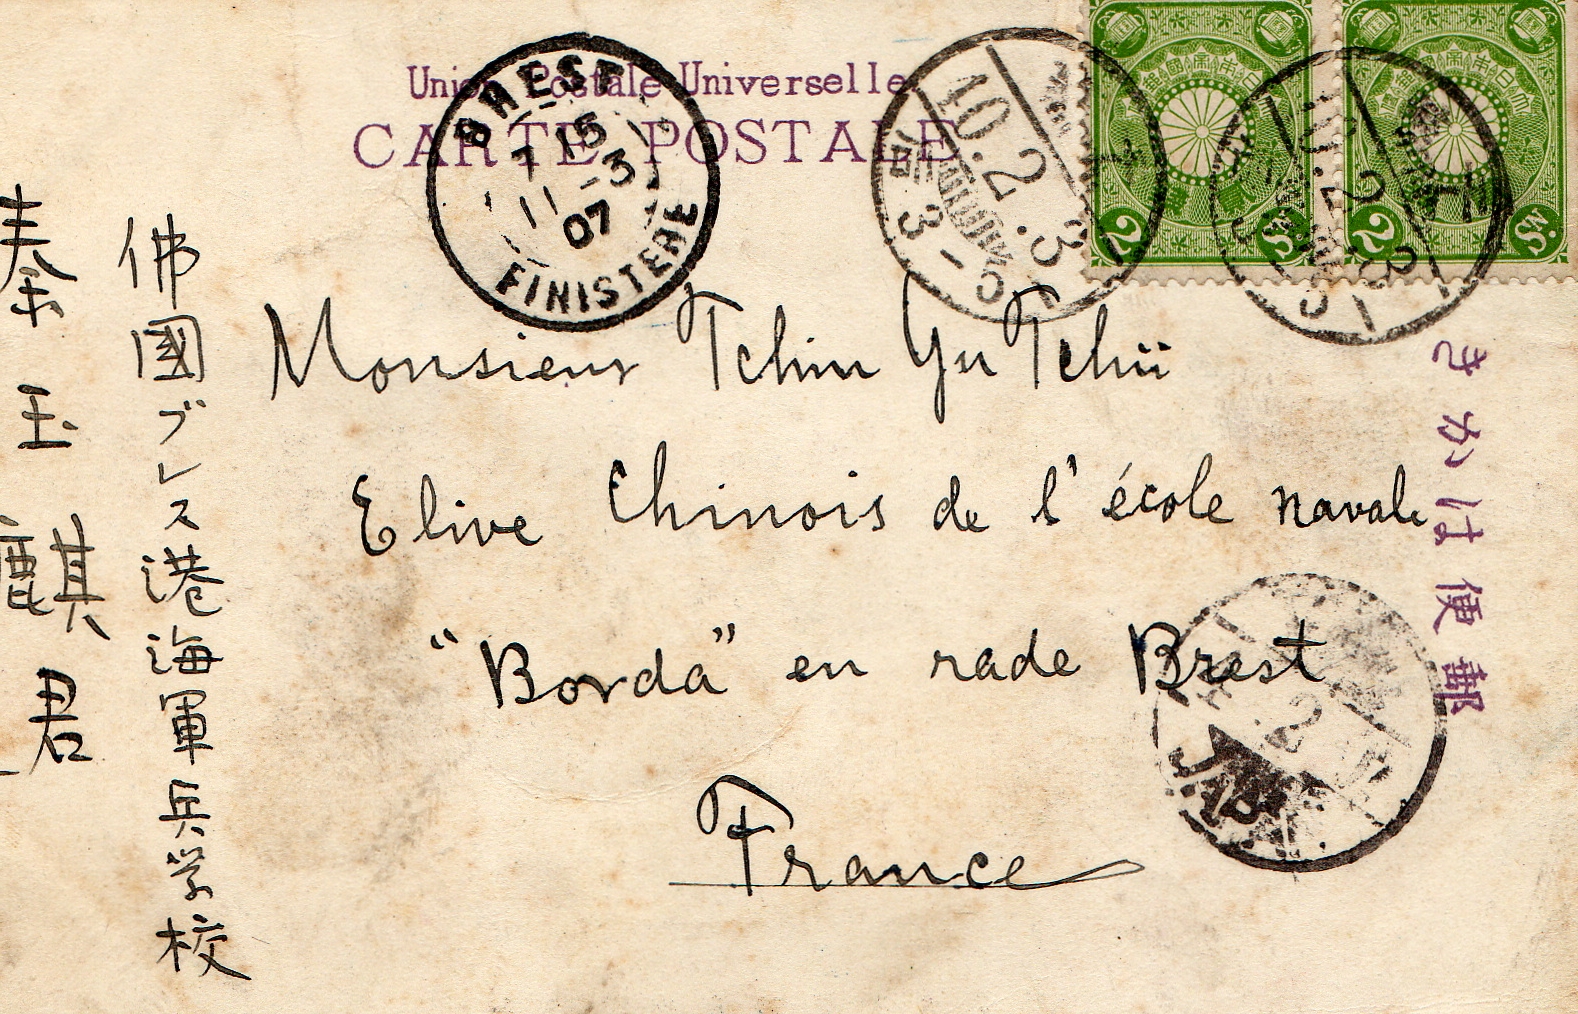 Union Postale Universelle
CARTE POSTALE
BREST
7 15
11 -3
07
FINISTERE
10.2.3
2 Sn.
2 Sn.
郵便はかき
Monsieur Tchin Yu Tchii
Elive Chinois de l'école navale
"Borda" en rade Brest
France
佛國ブレス港海軍兵学校
秦玉麒君